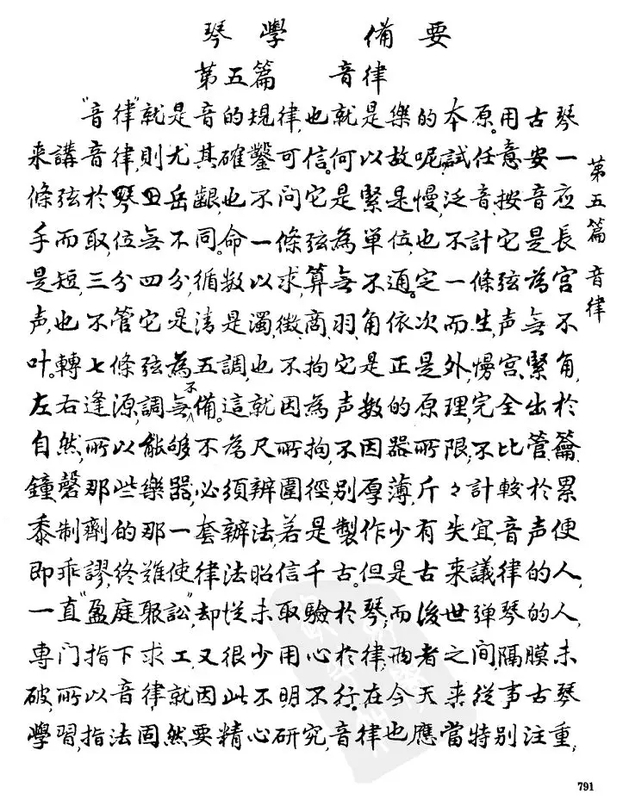 琴學 備要
第五篇 音律
"音律"就是音的規律,也就是樂的本原。用古琴
來講音律,則尤其確鑿可信。何以故呢,試任意安一
條弦於琴且岳齦,也不问它是緊是慢,泛音按音应
手而取,位無不同。命一條弦為單位,也不計它是長
是短,三分四分,循数以求,算無不通。定一條弦為宮
声,也不管它是清是濁,徵商羽角依次而生,声無不
叶。轉七條弦為五調,也不拘它是正是外,慢宮緊角,
左右逢源,調無不備。這就因為声数的原理,完全出於
自然,所以能够不為尺所拘,不因器所限,不比管籥
鐘磬那些樂器,必須辨圍徑,别厚薄,斤々計較於累
黍制劑的那一套辦法,若是製作少有失宜,音声便
即乖謬,終難使律法昭信千古。但是古來議律的人,
一直"盈庭聚訟",却從未取驗於琴,而後世弹琴的人,
專门指下求工,又很少用心於律,兩者之间隔膜未
破,所以音律就因此不明不行。在今天来從事古琴
學習,指法固然要精心研究,音律也應當特别注重,
第五篇 音律
791